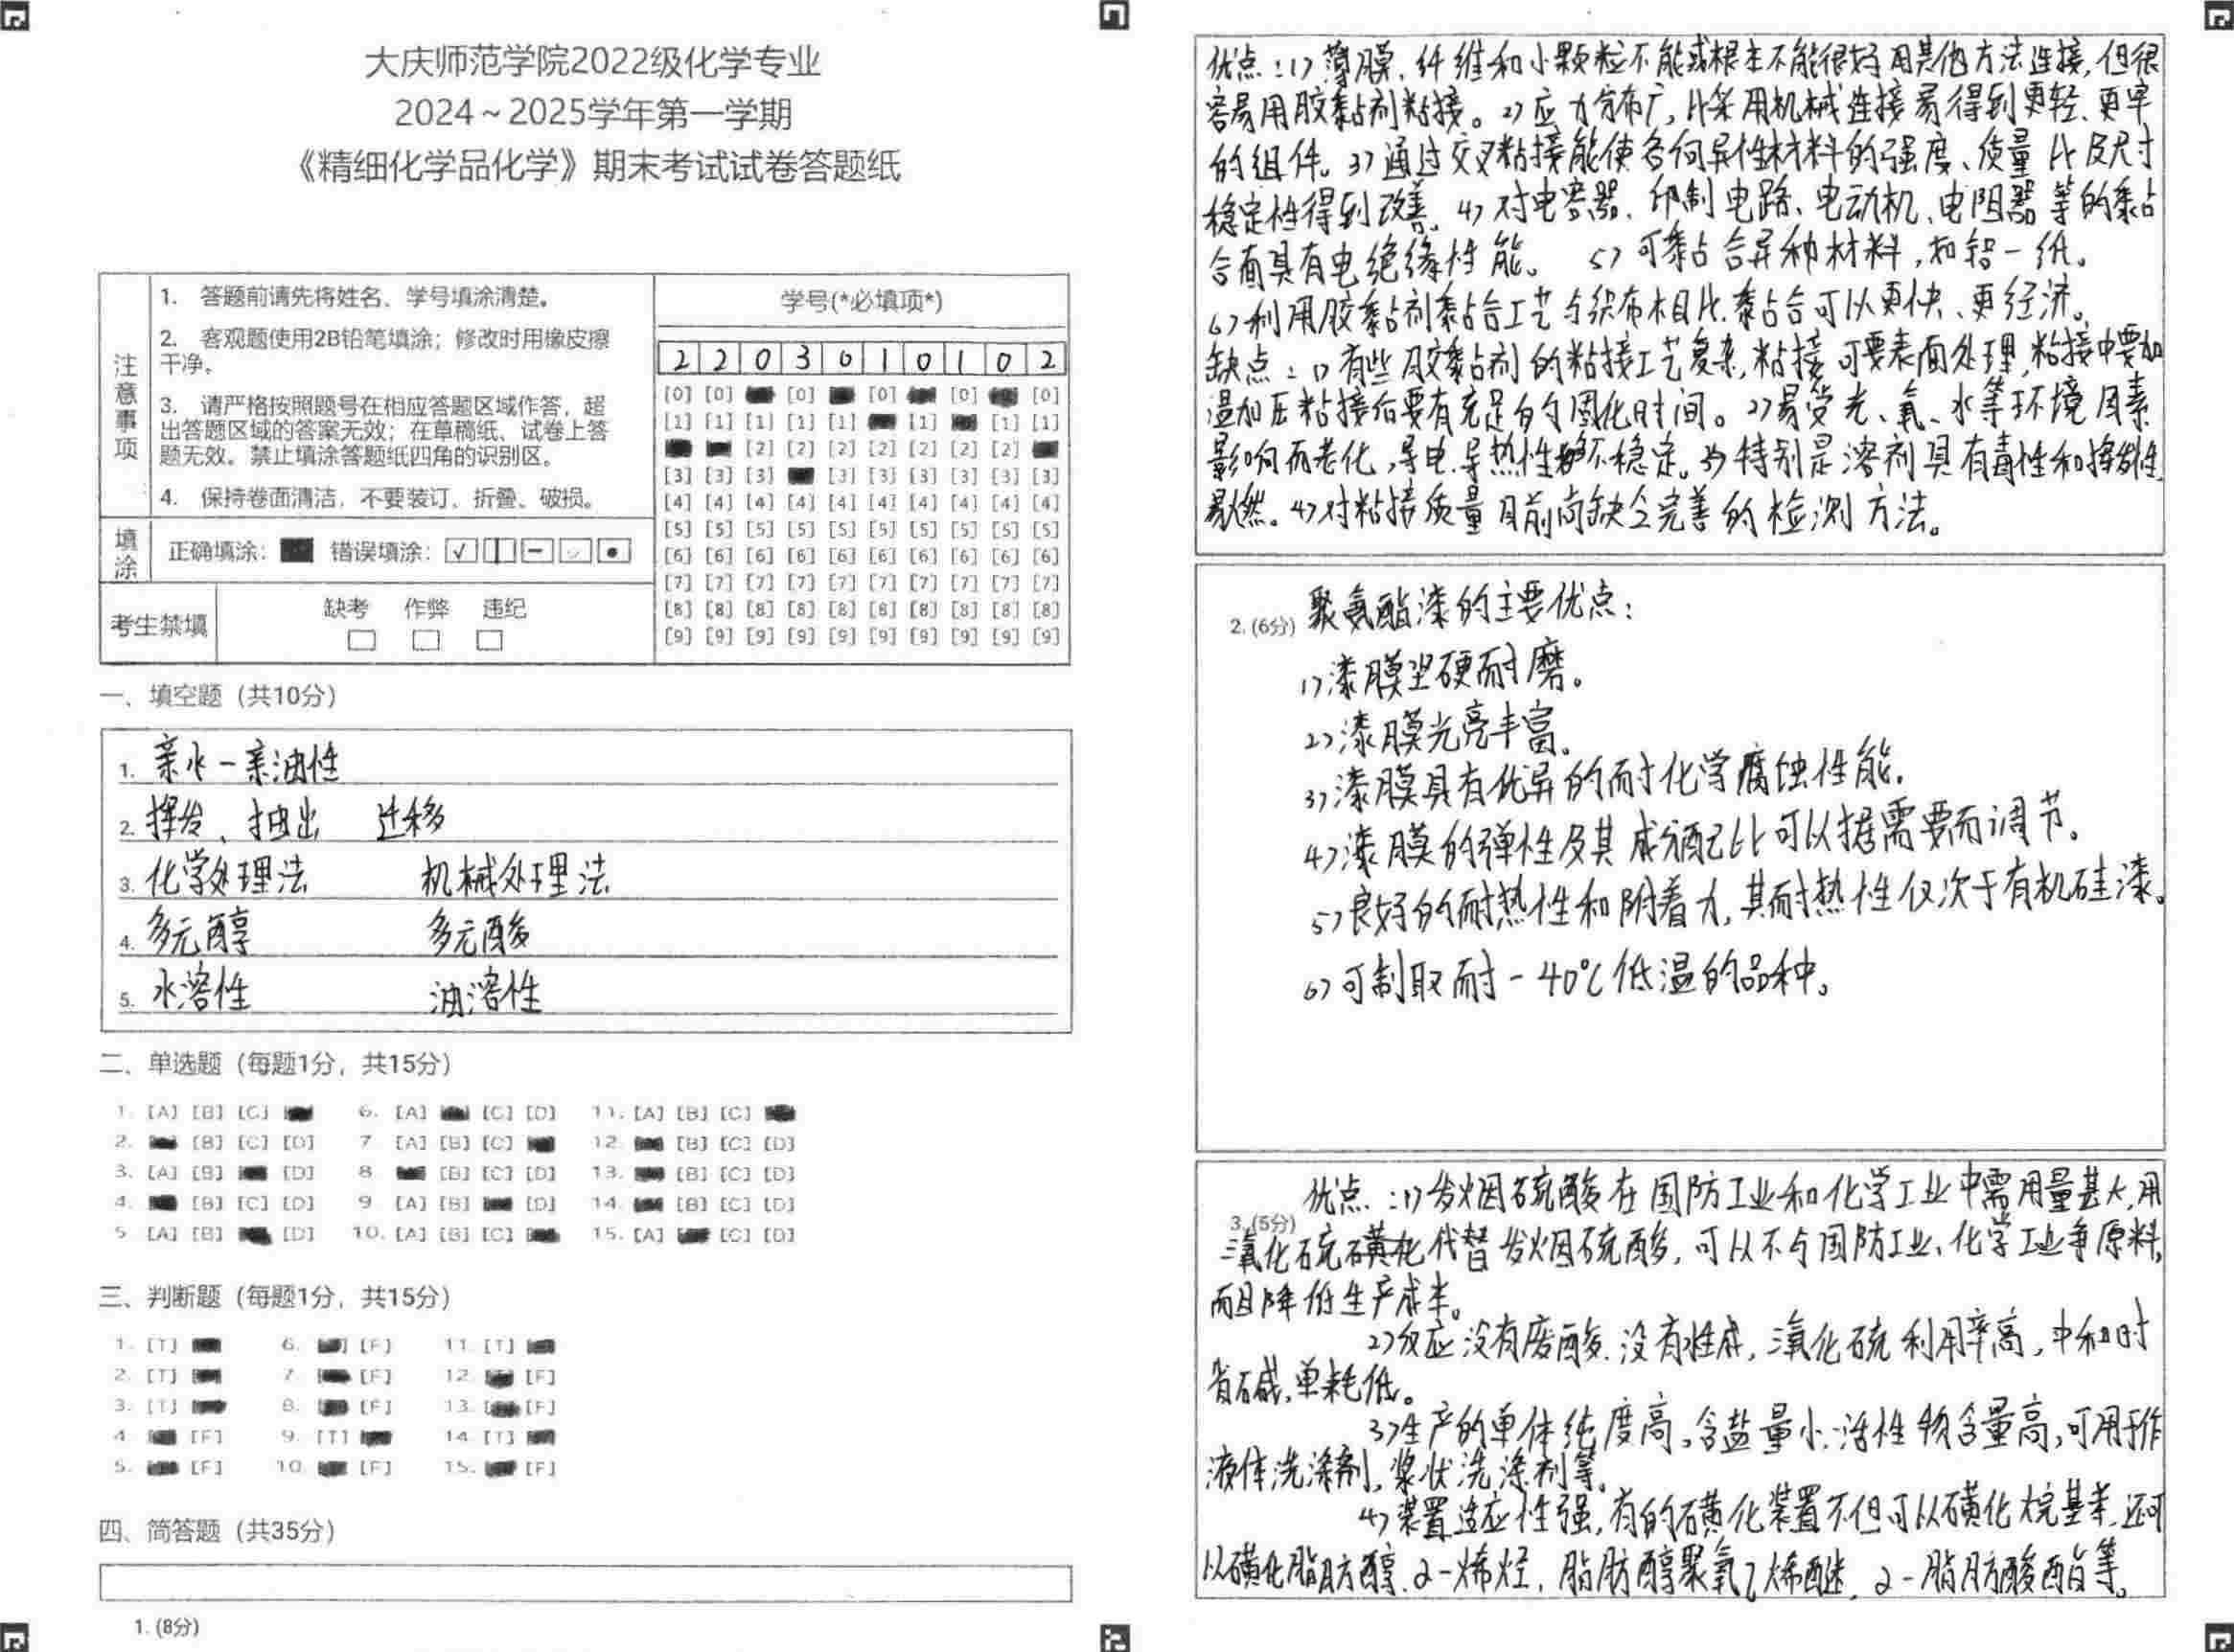 大庆师范学院2022级化学专业
2024～2025学年第一学期
《精细化学品化学》期末考试试卷答题纸
注意事项
1. 答题前请先将姓名、学号填涂清楚。
2. 客观题使用2B铅笔填涂；修改时用橡皮擦
干净。
3. 请严格按照题号在相应答题区域作答，超
出答题区域的答案无效；在草稿纸、试卷上答
题无效。禁止填涂答题纸四角的识别区。
4. 保持卷面清洁，不要装订、折叠、破损。
填涂 正确填涂： 错误填涂：
考生禁填 缺考 作弊 违纪
学号(*必填项*)
2 2 0 3 0 1 0 1 0 2
[0] [0] [0] [0] [0]
[1] [1] [1] [1] [1] [1] [1] [1]
[2] [2] [2] [2] [2] [2] [2]
[3] [3] [3] [3] [3] [3] [3] [3] [3]
[4] [4] [4] [4] [4] [4] [4] [4] [4] [4]
[5] [5] [5] [5] [5] [5] [5] [5] [5] [5]
[6] [6] [6] [6] [6] [6] [6] [6] [6] [6]
[7] [7] [7] [7] [7] [7] [7] [7] [7] [7]
[8] [8] [8] [8] [8] [8] [8] [8] [8] [8]
[9] [9] [9] [9] [9] [9] [9] [9] [9] [9]
一、填空题（共10分）
1. 亲水-亲油性
2. 挥发、抽出 迁移
3. 化学处理法 机械处理法
4. 多元醇 多元酸
5. 水溶性 油溶性
二、单选题（每题1分，共15分）
1. [A] [B] [C] 6. [A] [C] [D] 11. [A] [B] [C]
2. [B] [C] [D] 7 [A] [B] [C] 12. [B] [C] [D]
3. [A] [B] [D] 8 [B] [C] [D] 13. [B] [C] [D]
4. [B] [C] [D] 9 [A] [B] [D] 14. [B] [C] [D]
5 [A] [B] [D] 10. [A] [B] [C] 15. [A] [C] [D]
三、判断题（每题1分，共15分）
1. [T] 6. [F] 11 [T]
2. [T] 7 [F] 12. [F]
3. [T] 8. [F] 13. [F]
4 [F] 9. [T] 14 [T]
5. [F] 10 [F] 15. [F]
四、简答题（共35分）
1. (8分)
优点：1）薄膜、纤维和小颗粒不能或根本不能很好用其他方法连接，但很
容易用胶黏剂粘接。2）应力分布广，比采用机械连接易得到更轻、更牢
的组件。3）通过交叉粘接能使各向异性材料的强度、质量比及尺寸
稳定性得到改善。4）对电容器、印制电路、电动机、电阻器等的黏
合面具有电绝缘性能。 5）可黏合异种材料，如铝一纸。
6）利用胶黏剂黏合工艺与织布相比，黏合可以更快、更经济。
缺点：1）有些胶黏剂的粘接工艺复杂，粘接可要表面处理，粘接中要加
温加压粘接后要有充足的固化时间。2）易受光、氧、水等环境因素
影响而老化，导电导热性能不稳定。3）特别是溶剂具有毒性和挥发性
易燃。4）对粘接质量目前尚缺乏完善的检测方法。
2. (6分) 聚氨酯漆的主要优点：
1）漆膜坚硬耐磨。
2）漆膜光亮丰富。
3）漆膜具有优异的耐化学腐蚀性能。
4）漆膜的弹性及其成分配比可以据需要而调节。
5）良好的耐热性和附着力，其耐热性仅次于有机硅漆。
6）可制取耐-40℃低温的品种。
优点：1）发烟硫酸在国防工业和化学工业中需用量甚大，用
3. (5分)
三氧化硫磺化代替发烟硫酸，可以不与国防工业、化学工业争原料，
而且降低生产成本。
2）反应没有废酸、没有水生成，三氧化硫利用率高，中和时
省碱，单耗低。
3）生产的单体纯度高，含盐量小，活性物含量高，可用于作
液体洗涤剂，浆状洗涤剂等。
4）装置适应性强，有的磺化装置不但可以磺化烷基苯，还可
以磺化脂肪醇、α-烯烃，脂肪醇聚氧乙烯醚，α-脂肪酸酯等。